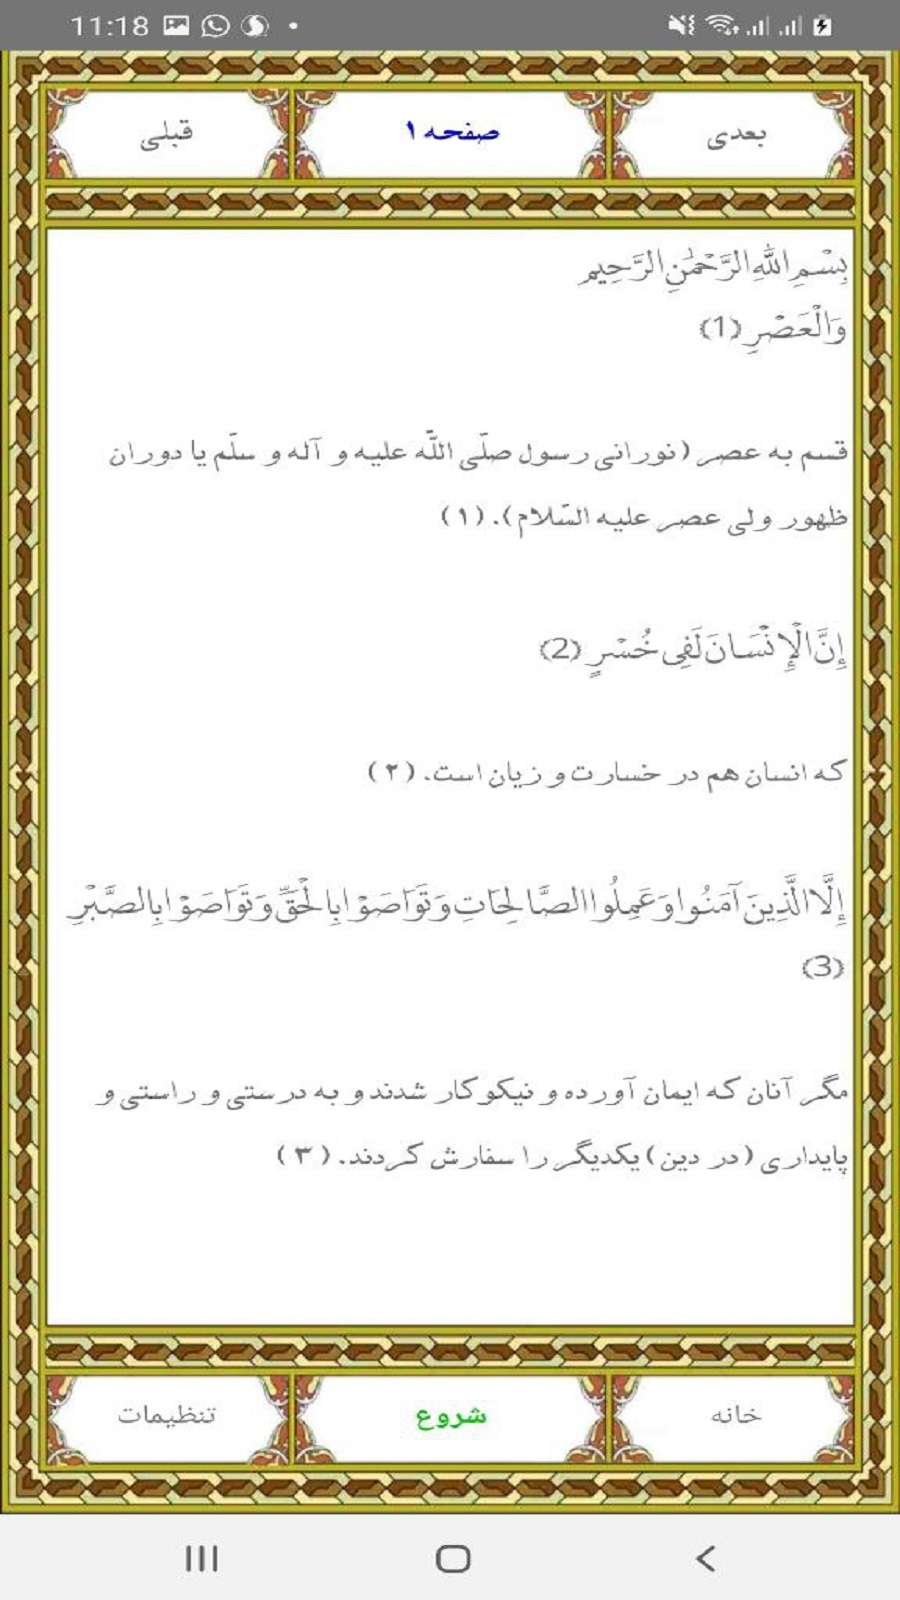 11:18
قبلی
صفحه ۱
بعدی
بِسْمِ اللَّهِ الرَّحْمَٰنِ الرَّحِيمِ
وَالْعَصْرِ (1)
قسم به عصر (نورانی رسول صلّی اللّه علیه و آله و سلّم یا دوران
ظهور ولی عصر علیه السّلام). (۱)
إِنَّ الْإِنْسَانَ لَفِي خُسْرٍ (2)
که انسان هم در خسارت و زیان است. (۲)
إِلَّا الَّذِينَ آمَنُوا وَعَمِلُوا الصَّالِحَاتِ وَتَوَاصَوْا بِالْحَقِّ وَتَوَاصَوْا بِالصَّبْرِ
(3)
مگر آنان که ایمان آورده و نیکوکار شدند و به درستی و راستی و
پایداری (در دین) یکدیگر را سفارش کردند. (۳)
تنظیمات
شروع
خانه